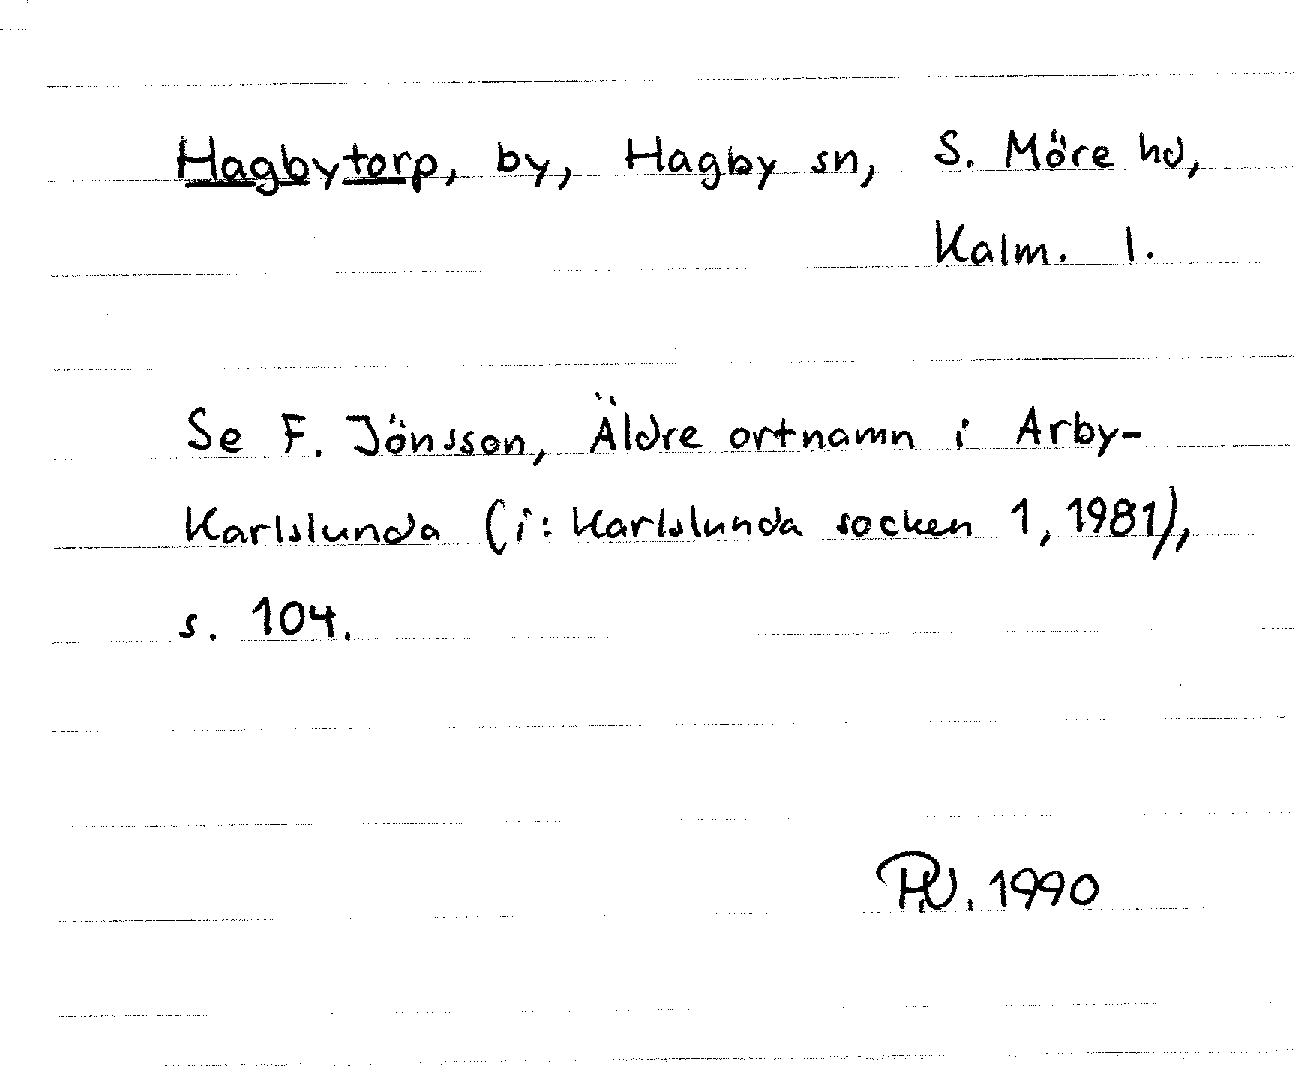 Hagbytorp, by, Hagby sn, S. Möre hd,
Kalm. l.
Se F. Jönsson, Äldre ortnamn i Arby-
Karlslunda (i: Karlslunda socken 1, 1981),
s. 104.
1990